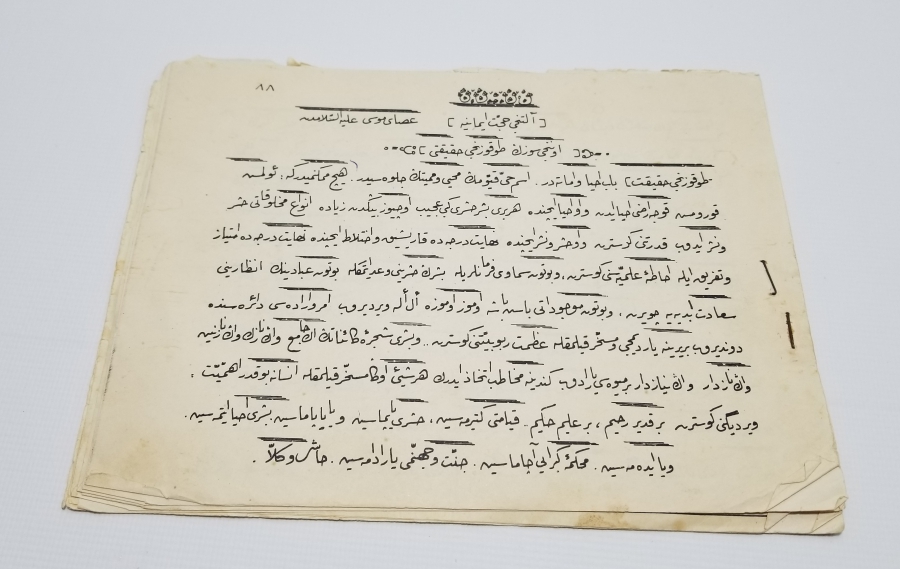 ٨٨
عصای موسی علیه السّلامدن
[ آلتنجی حجّت ایمانیه ]
اوننجی سوزك طوقوزنجی حقیقتی
طوقوزنجی حقیقت باب احیا و اماته در. اسم حیّ قیّومك محیی و ممیتك جلوه سیدر. هیچ ممكنمیدركه: ئولمش
قورومش قوجه ارضی احیا ایدن و او احیا ایچنده هربری بشر حشری كبی عجیب اوچیوز بیڭدن زیاده انواع مخلوقاتی حشر
و نشر ایدوب قدرتنی كوسترن و او حشر و نشر ایچنده نهایت درجه ده قاریشیق و اختلاط ایچنده نهایت درجه ده امتیاز
و تفریق ایله احاطهٔ علمیّه سنی كوسترن، و بوتون سماوی فرمانلریله بشرك حشرینی وعد ایتمكله بوتون عبادینك انظارینی
سعادت ابدیه یه چویرن، و بوتون موجوداتی باش باشه اوموز اوموزه أل أله ویردیروب امر و اراده سی دائره سنده
دوندیروب بربرینه یاردیمجی و مسخّر قیلمقله عظمت ربوبیتنی كوسترن.. و بشری شجرهٔ كائناتك اڭ جامع و اڭ نازك و اڭ نازنین
و اڭ نازدار و اڭ نیازدار بر میوه سی یارادوب كندینه مخاطب اتخاذ ایدرك هر شیئی اوكا مسخّر قیلمقله انسانه بو قدر اهمیّت
ویردیگنی كوسترن بر قدیر رحیم، بر علیم حكیم. قیامتی كتیرمه سین، حشری یاپماسین و یاپاماسین بشری احیا ایتمه سین.
ویا ایده مه سین. محكمهٔ كبرایی آچاماسین. جنّت و جهنّمی یارادامه سین. حاشا و كلّا.